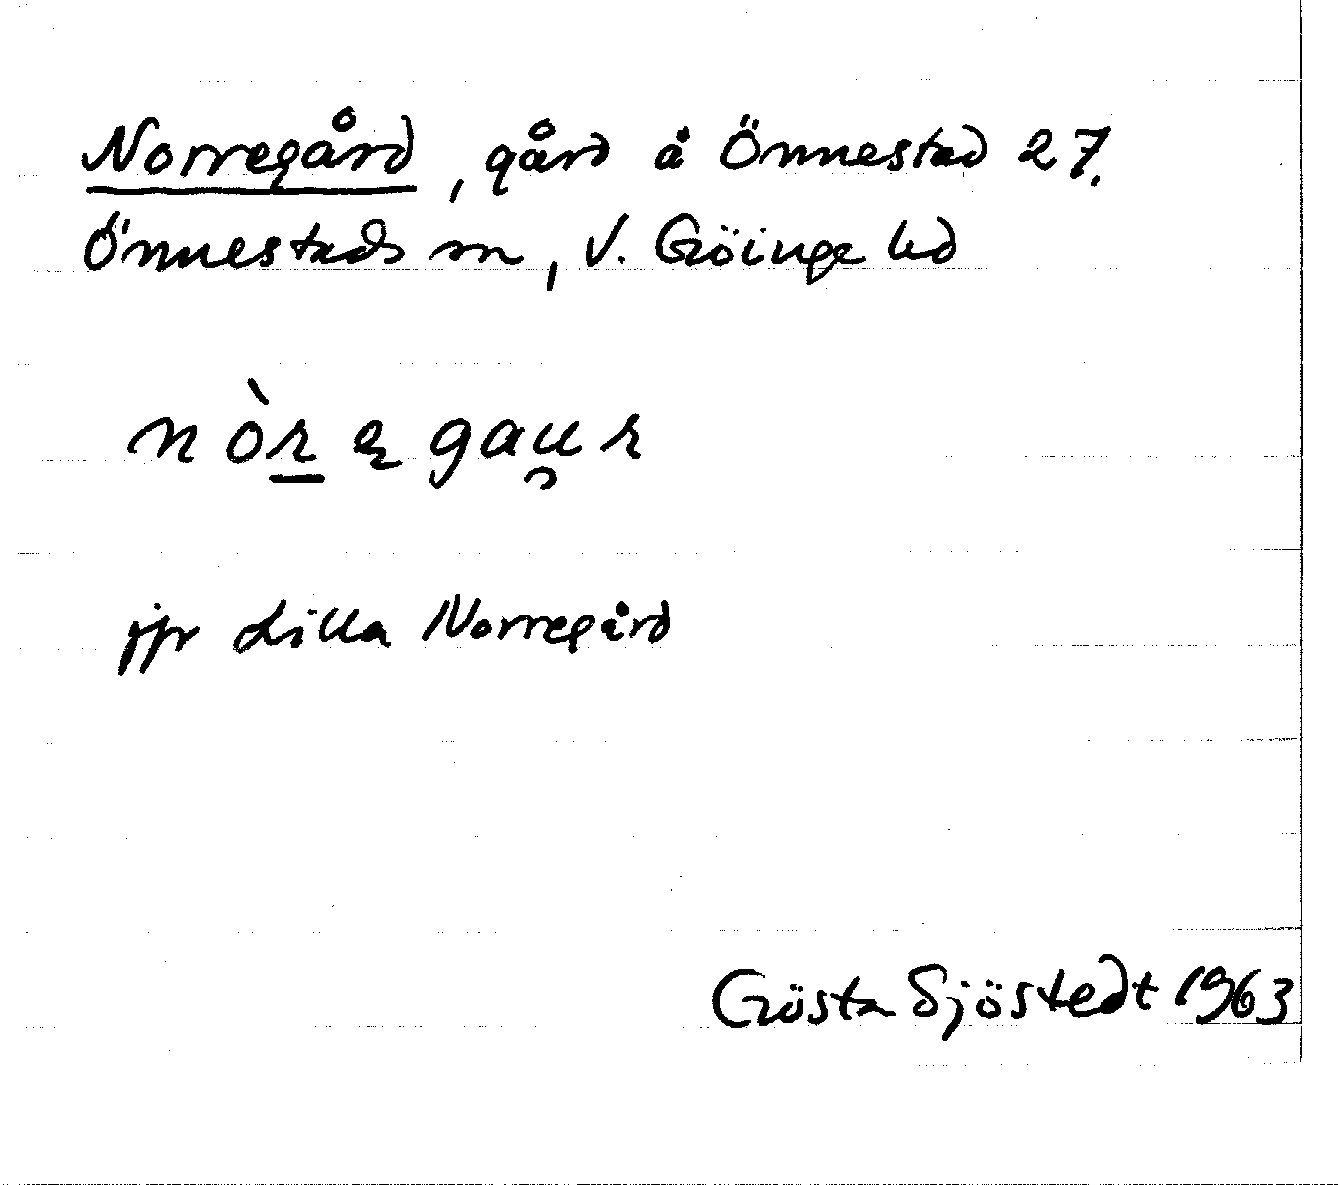 Norregård, gård å Önnestad 27.
Önnestads sn, V. Göinge hd
nòr̲ęgau̯r
jfr Lilla Norregård
Gösta Sjöstedt 1963